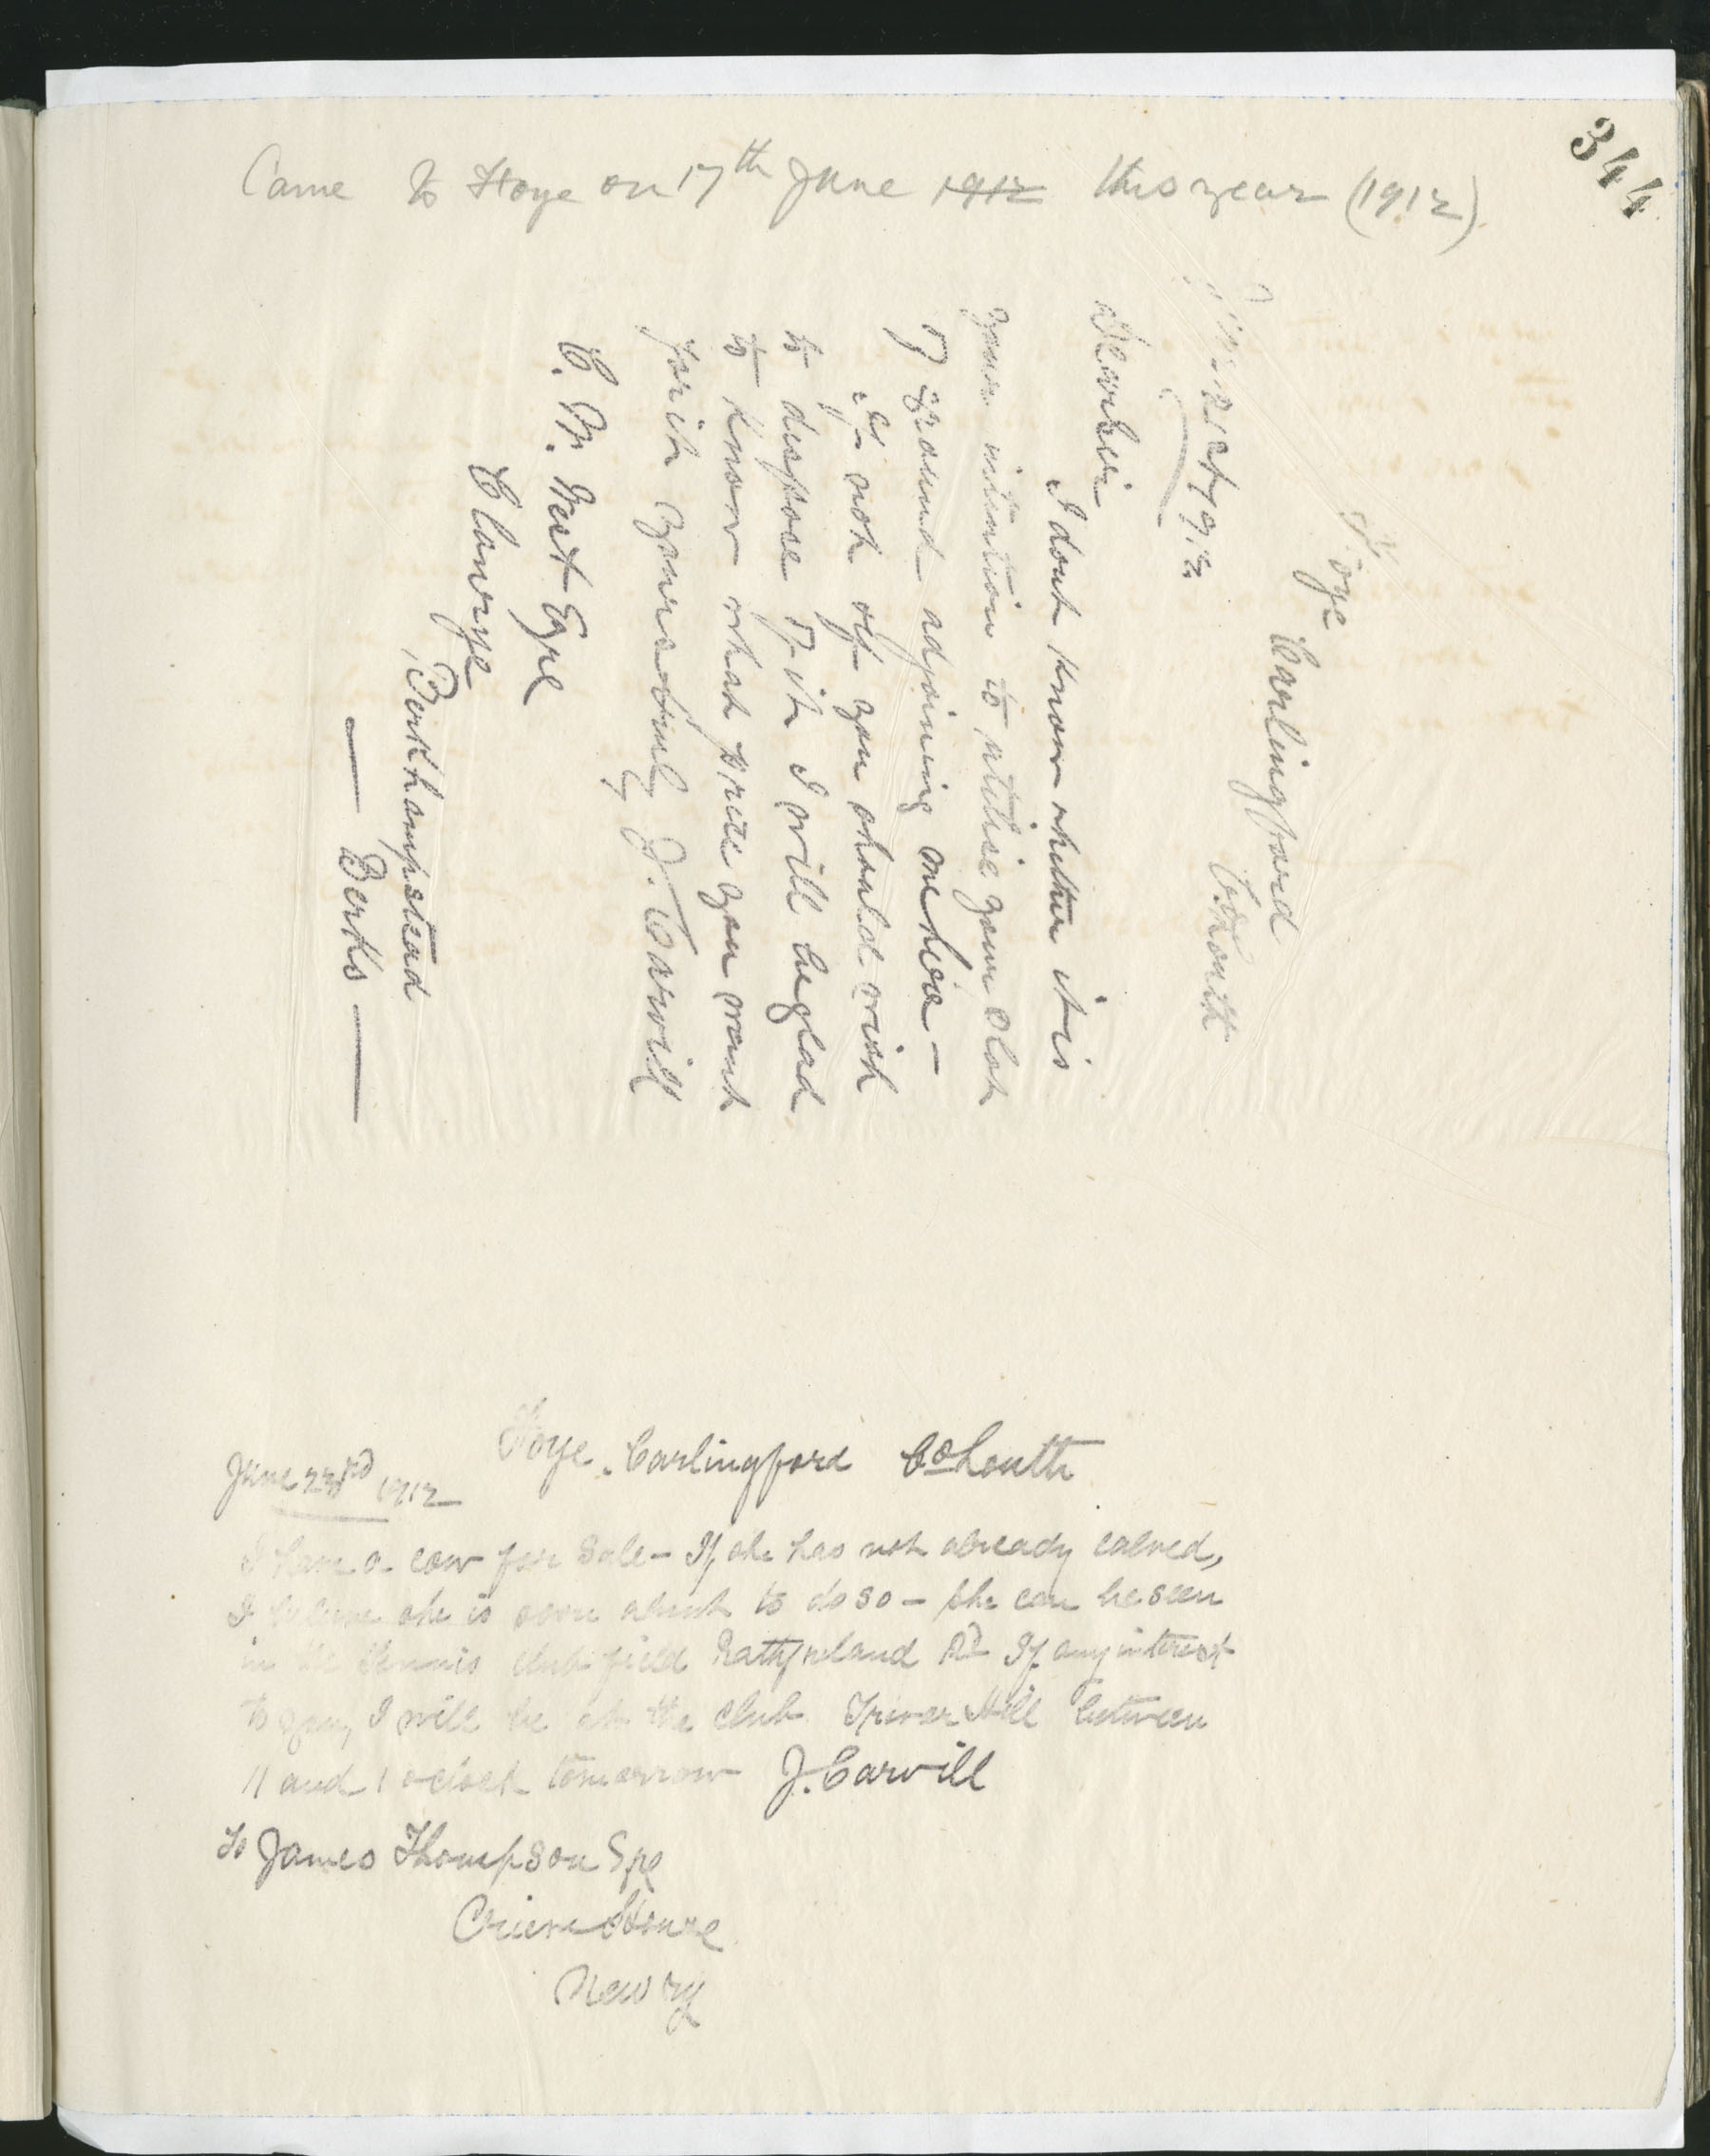 344
Came to Foye on 17th June 1912 this year (1912)
Foye
Carlingford
Co Louth
June 21st 1912
Dear Sir
I dont know whether it is
your intention to utilise your plot
of ground adjoining me here -
If not if you should wish
to dispose of it I will be glad
to know what price you want
for it Yours truly J. Carvill
C. M. West Esqre
Clanorye
Berkhampstead
Berks
Foye. Carlingford Co Louth
June 23rd 1912
I have a cow for sale - If she has not already calved,
I believe she is soon about to do so - She can be seen
in the Tennis Club field Rathfriland Rd If any interest
to you, I will be at the Club Trevor Hill between
11 and 1 oclock tomorrow J. Carvill
To James Thompson Esqe
House
Newry